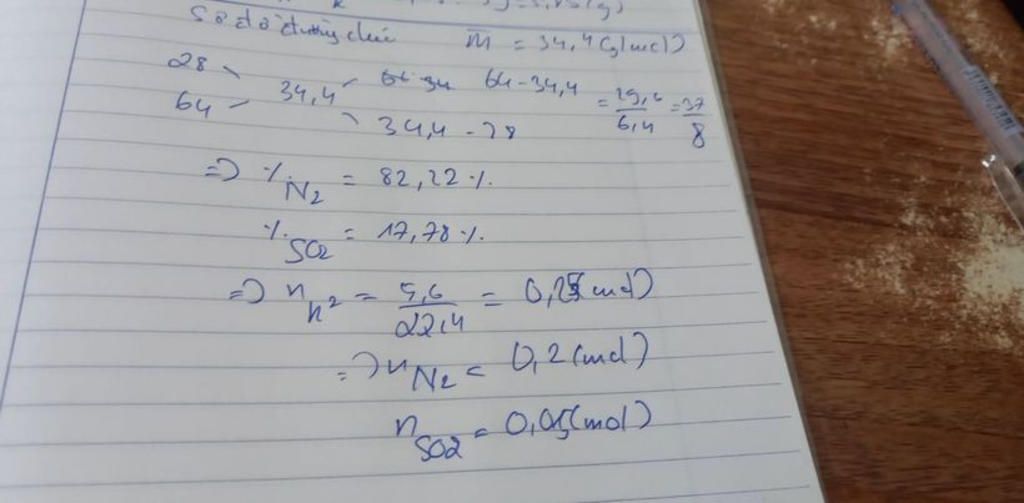 Sơ đồ đường chéo M̅ = 34,4 (g/mol)
28 64 - 34,4
34,4 = 29,6/6,4 = 37/8
64 34,4 - 28
=> %N2 = 82,22%.
%SO2 = 17,78%.
=> n h² = 5,6/22,4 = 0,25 (mol)
=> nN2 = 0,2 (mol)
nSO2 = 0,05 (mol)